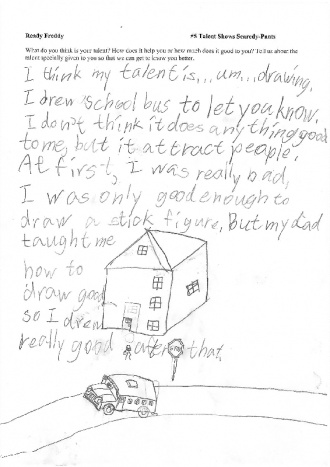 Ready Freddy #5 Talent Shows Scaredy-Pants
What do you think is your talent? How does it help you or how much does it good to you? Tell us about the
talent specially given to you so that we can get to know you better.
I think my talent is,,, um,,, drawing.
I drew school bus to let you know.
I don't think it does any thing good
to me, but it attract people.
At first, I was really bad,
I was only good enough to
draw a stick figure, But my dad
taught me
how to
draw good
so I drew
really good after that.